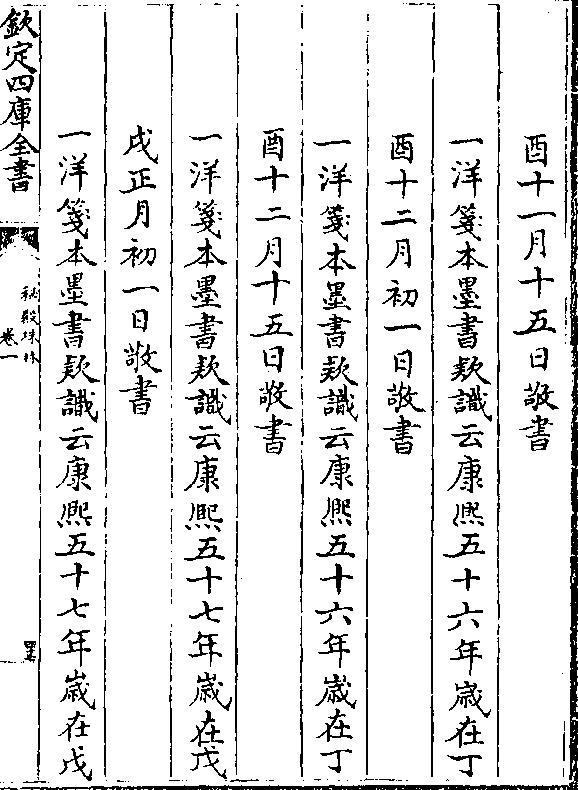 酉十一月十五日敬書
一洋箋本墨書款識云康熈五十六年嵗在丁
酉十二月初一日敬書
一洋箋本墨書款識云康熈五十六年嵗在丁
酉十二月十五日敬書
一洋箋本墨書款識云康熈五十七年嵗在戊
戌正月初一日敬書
一洋箋本墨書款識云康熈五十七年嵗在戊
欽定四庫全書
秘殿珠林
卷一